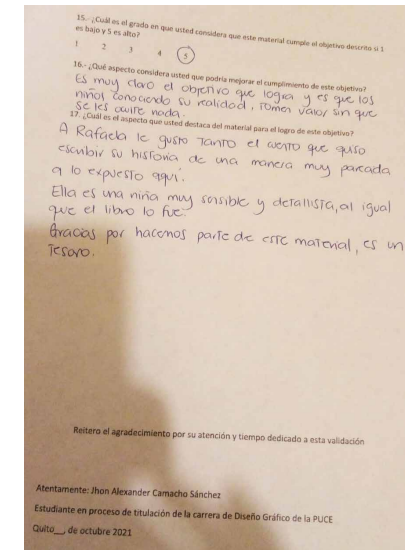 15.- ¿Cuál es el grado en que usted considera que este material cumple el objetivo descrito si 1
es bajo y 5 es alto?
1 2 3 4 5
16.- ¿Qué aspecto considera usted que podría mejorar el cumplimiento de este objetivo?
Es muy claro el objetivo que logra y es que los
niños conociendo su realidad, tomen valor sin que
se les quite nada.
17. ¿Cuál es el aspecto que usted destaca del material para el logro de este objetivo?
A Rafaela le gustó tanto el cuento que quiso
escribir su historia de una manera muy pareada
a lo expuesto aquí.
Ella es una niña muy sensible y detallista, al igual
que el libro lo fue.
Gracias por hacernos parte de este material, es un
tesoro.
Reitero el agradecimiento por su atención y tiempo dedicado a esta validación
Atentamente: Jhon Alexander Camacho Sánchez
Estudiante en proceso de titulación de la carrera de Diseño Gráfico de la PUCE
Quito__, de octubre 2021